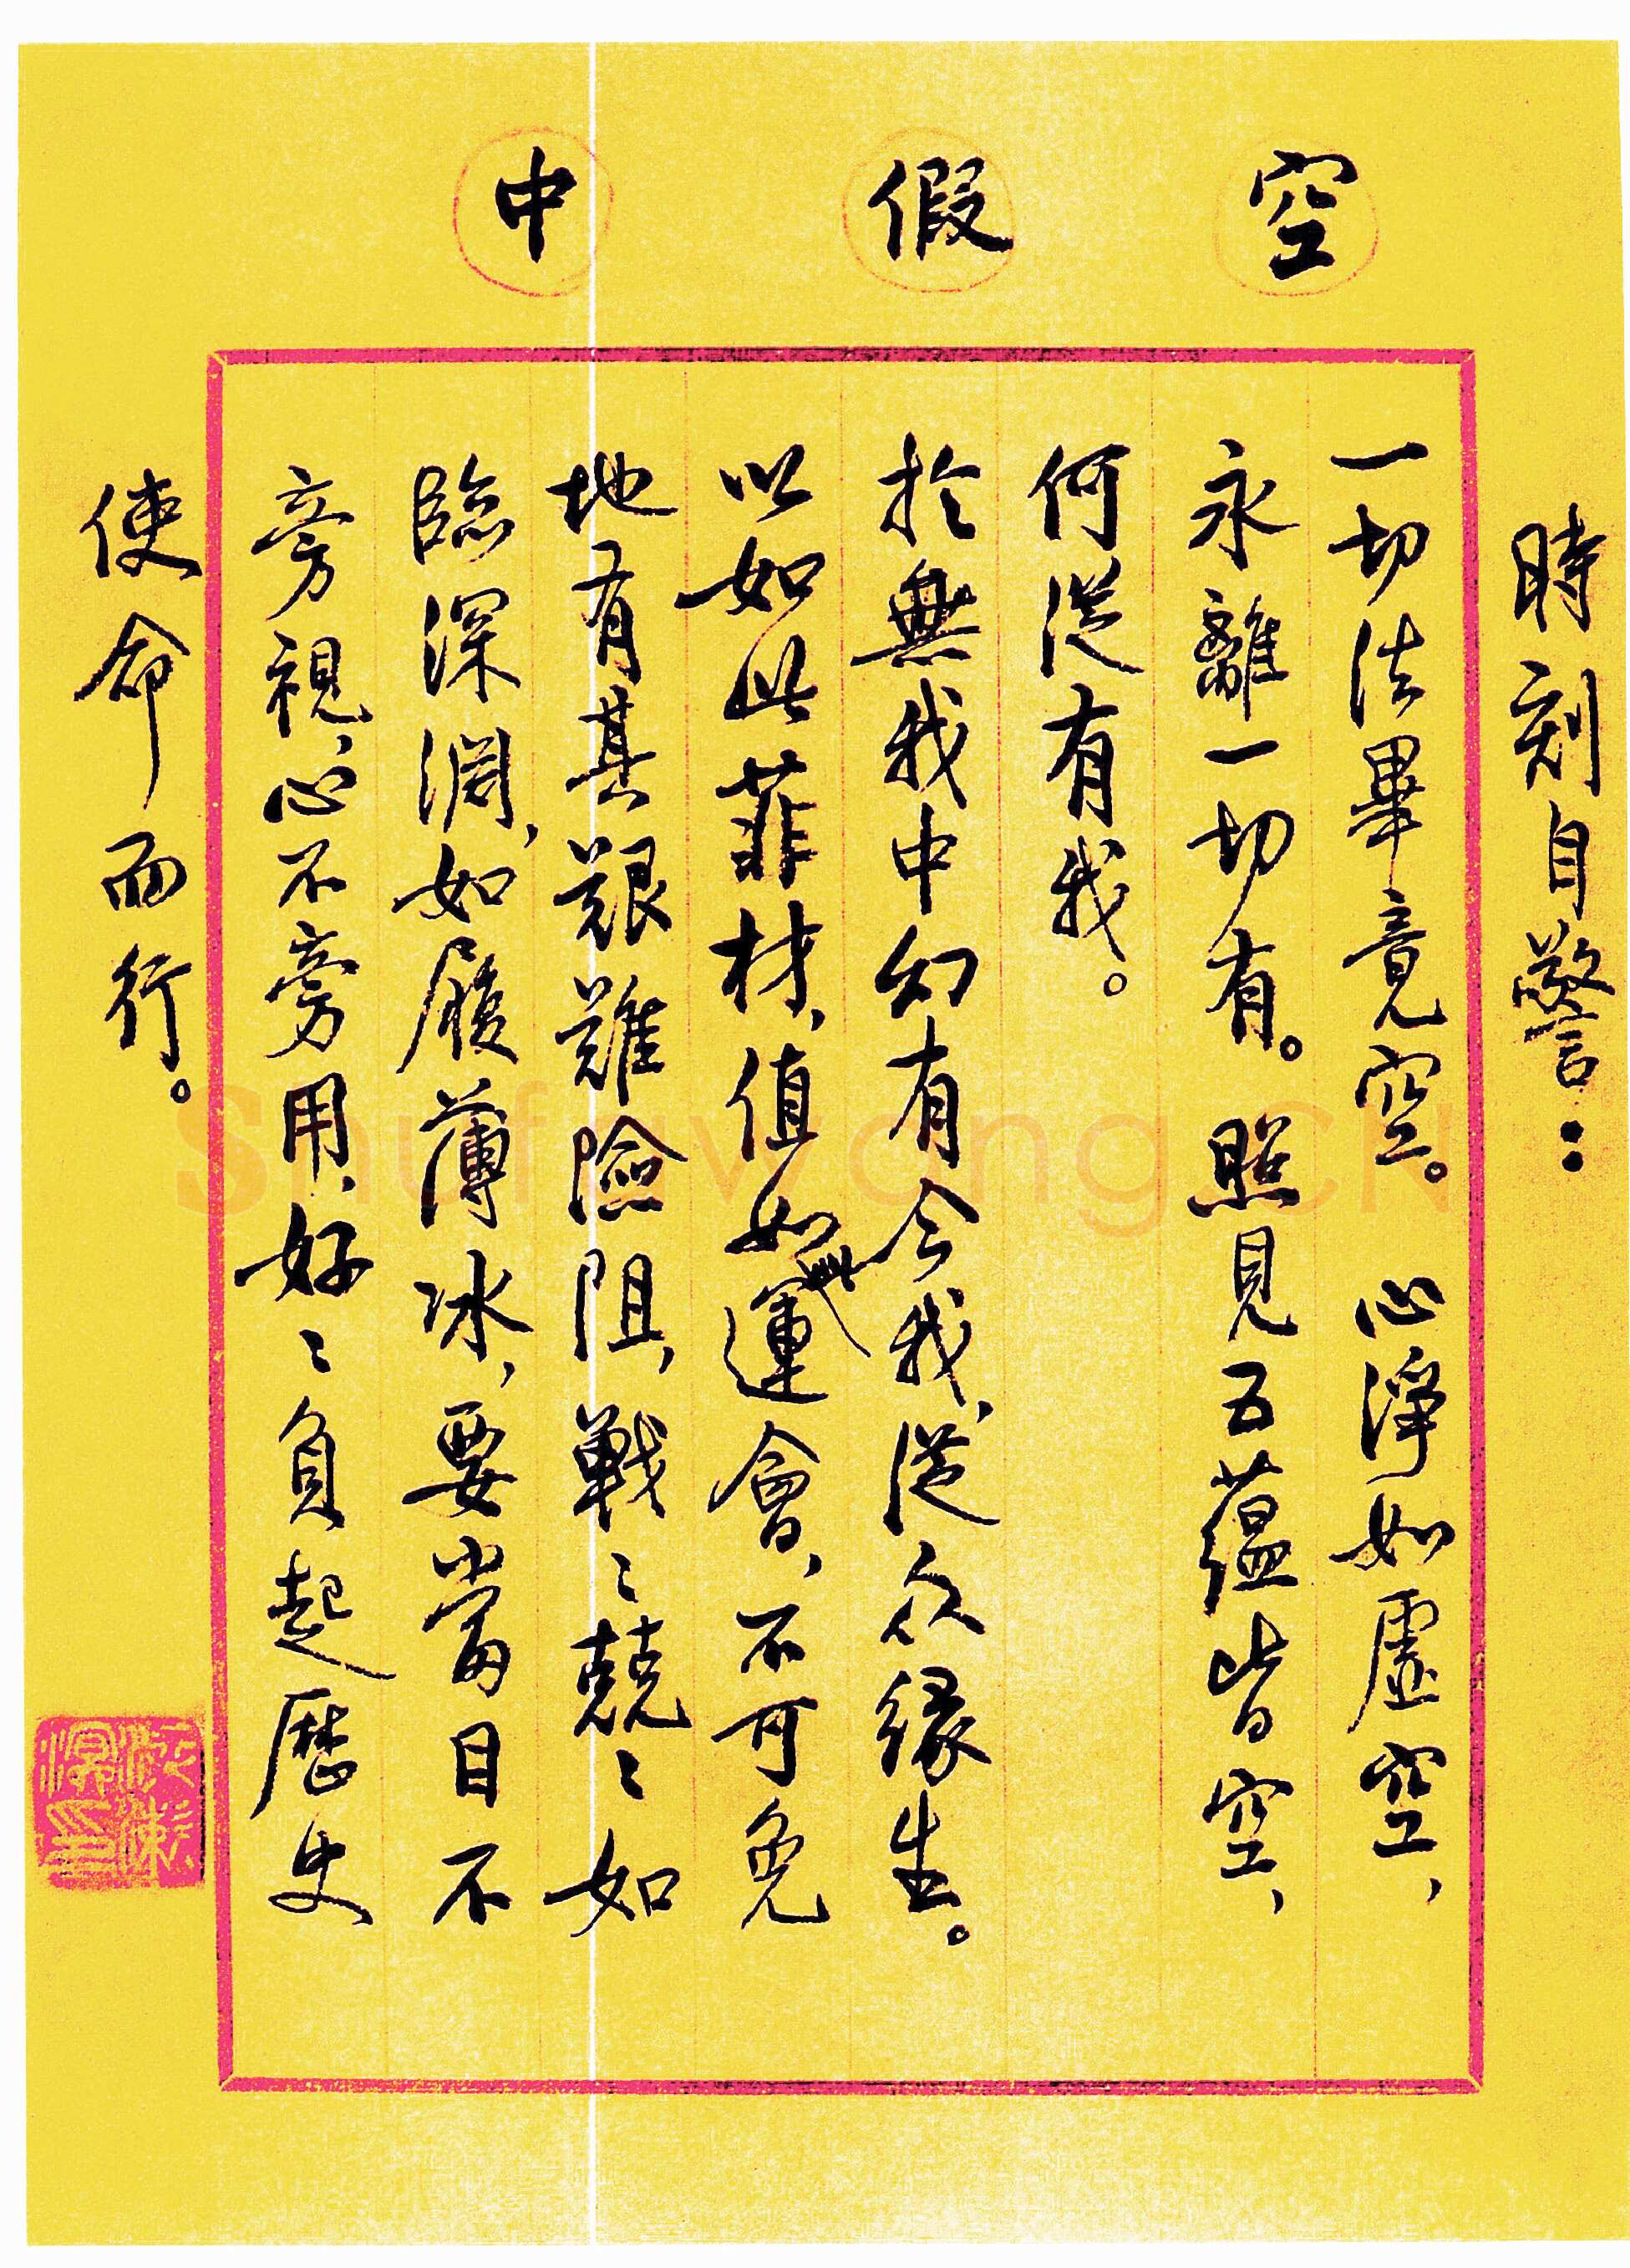 空 假 中
時刻自警：
一切法畢竟空。心淨如虛空，
永離一切有。照見五蘊皆空，
何從有我。
於無我中幻有今我，從众緣生。
以如此菲材，值如此運會，不可免
地有其艱難險阻，戰〻兢〻如
臨深淵，如履薄冰，要當目不
旁視，心不旁用，好〻負起歷史
使命而行。
Shufawang.CN